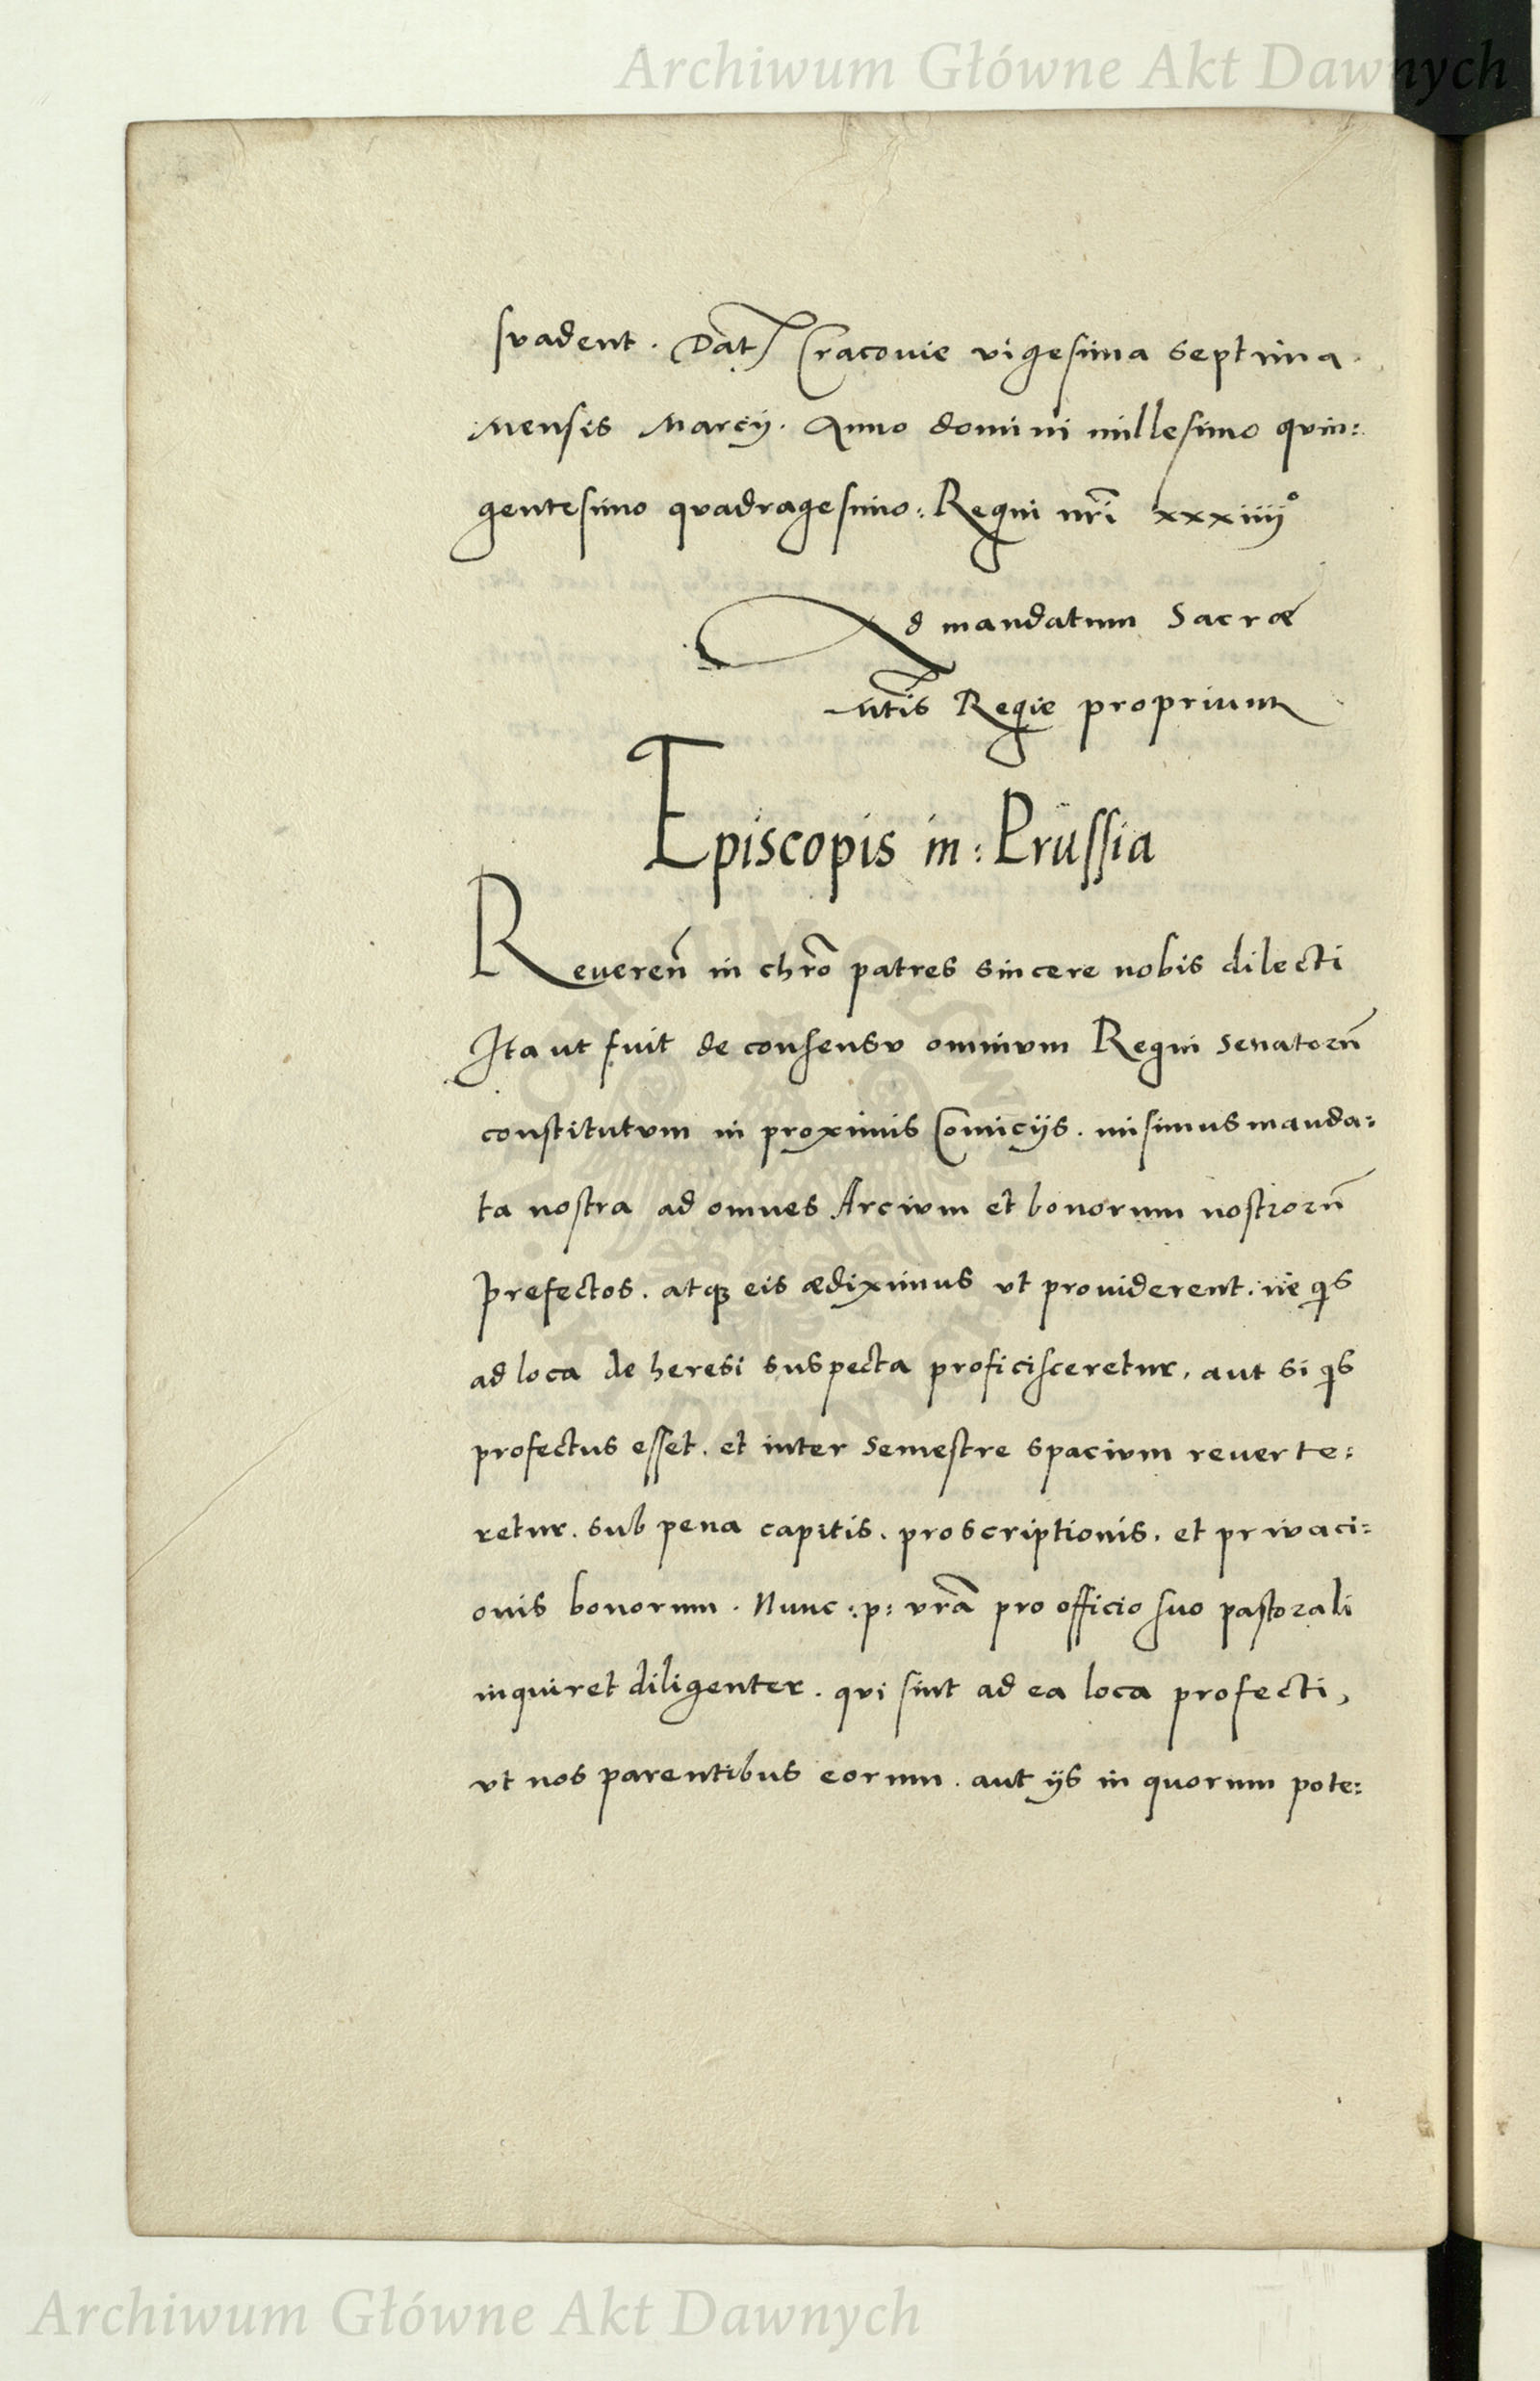 Archiwum Główne Akt Dawnych
svadent. Dat Cracouie vigesima septima
mensis Marcij. Anno domini millesimo qvin:
gentesimo qvadragesimo: Regni nrĩ xxxiiij°
Ad mandatum Sacræ
Mtis Regie proprium
Episcopis in: Prussia
Reueren̄ in chr̃o patres sincere nobis dilecti
Ita ut fvit de consensv omnivm Regni senatorũ
constitutvm in proximis Comicijs. misimus manda:
ta nostra ad omnes Arcivm et bonorum nostrorũ
prefectos. atqꝫ eis ædiximus vt prouiderent. ne qis
ad loca de heresi suspecta proficisceretur, aut si qis
profectus esset. et inter semestre spacivm reuerte:
retur. sub pena capitis. proscriptionis. et privaci:
onis bonorum. Nunc :p: vrã pro officio svo pastorali
inqviret diligenter. qvi sint ad ea loca profecti,
vt nos parentibus eorum. aut ijs in quorum pote:
Archiwum Główne Akt Dawnych